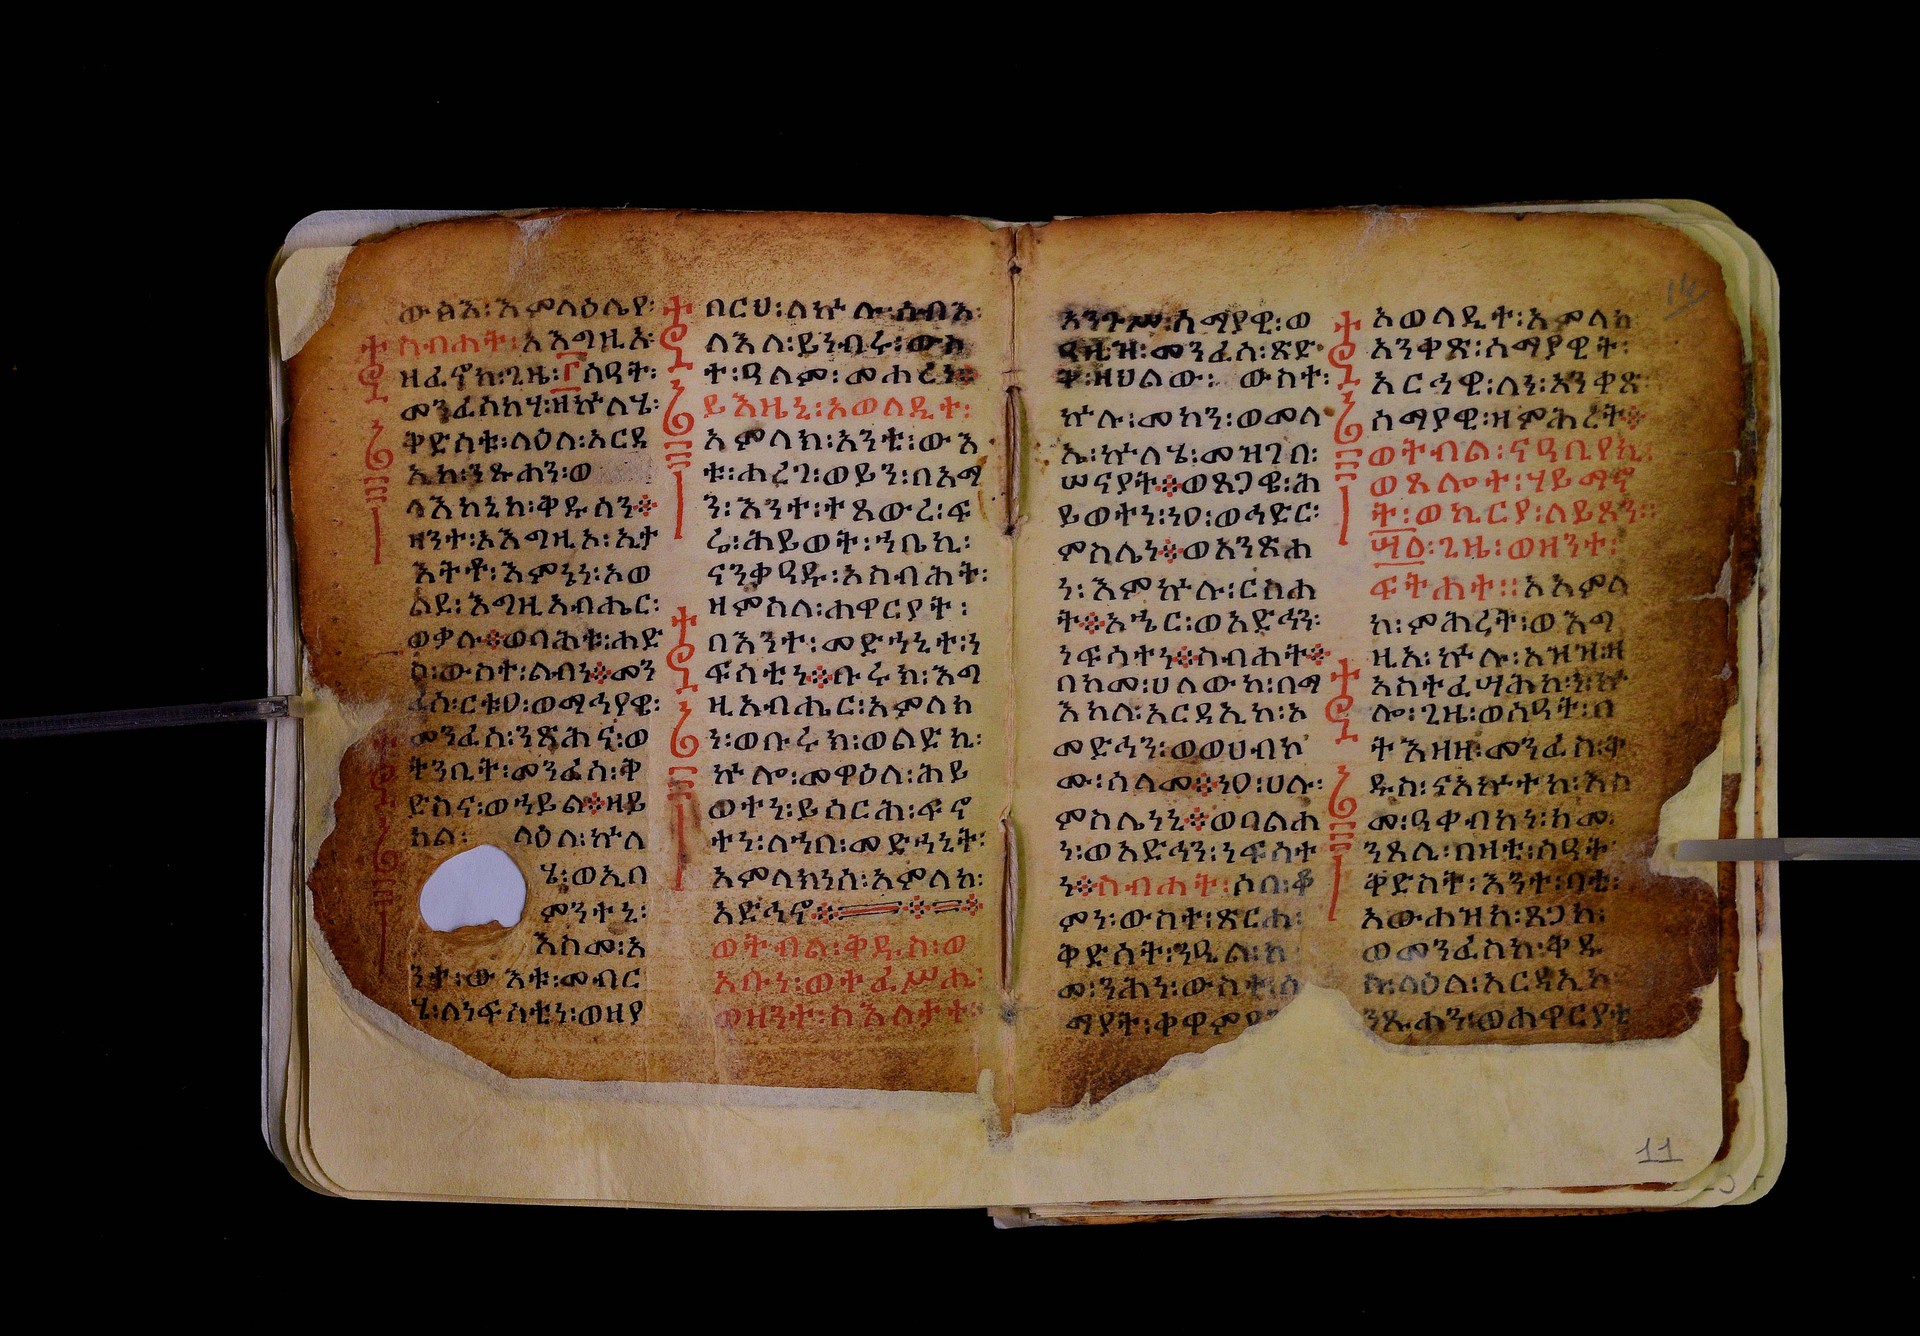 ስብሐት፡ አእግዚአ፡
ዘፈኖከ፡ጊዜ፡፫ስዓት፡
መንፈስከሃ፡ዘኵለሄ፡
ቅድስቱ፡ላዕለ፡አርዳ
ኢከ፡ንጹሐን፡ወ
ላእከኒከ፡ቅዱሳን፨
ዘንተ፡አእግዚኦ፡ኢታ
እትቶ፡እምኔነ፡አወ
ልደ፡እግዚአብሔር፡
ወቃሉ፨ወባሕቱ፡ሐድ
ስ፡ውስተ፡ልብነ፨መን
ፈስ፡ርቱዐ፡ወማኅየዌ፡
መንፈስ፡ንጽሕና፡ወ
ትንቢት፡መንፈስ፡ቅ
ድስና፡ወኀይል፨ዘይ
ክል፡ ላዕለ፡ኵለ
ሄ፡ወኢበ
ምንተኒ፡
እስመ፡አ
ንተ፡ውእቱ፡መብር
ሄ፡ለነፍሳቲነ፡ወዘየ
በርህ፡ለኵሉ፡ሰብእ፡
ለእለ፡ይነብሩ፡ውስ
ተ፡ዓለም፡መሐረነ፨
ይእዜኒ፡አወላዲተ፡
አምላክ፡አንቲ፡ውእ
ቱ፡ሐረገ፡ወይን፡በአማ
ን፡እንተ፡ተጸውረ፡ፍ
ሬ፡ሕይወት፡ኀቤኪ፡
ናንቃዓዱ፡አስብሕት፡
ዘምስለ፡ሐዋርያት፡
በእንተ፡መድኀኒተ፡ነ
ፍሳቲነ፨ቡሩክ፡እግ
ዚአብሔር፡አምላክ
ነ፡ወቡሩክ፡ወልድኪ፡
ኵሎ፡መዋዕለ፡ሕይ
ወትነ፡ይሰርሕ፡ፍኖ
ተነ፡ለኀበ፡መድኀኒት፡
አምላክነሰ፡አምላክ፡
አድኅኖ፨
ወትብል፡ቅዱስ፡ወ
አቡነ፡ወተፈሥሒ፡
ወዘንተ፡ስእለታተ፡
አንጉሥ፡ሰማያዊ፡ወ
ናዛዚ፡መንፈሰ፡ጽድ
ቅ፡ዘህልው፡ ውስተ፡
ኵሉ፡መካን፡ወመላ
ኤ፡ኵለሄ፡መዝገበ፡
ሠናያት፨ወጸጋዌ፡ሕ
ይወትነ፡ነዐ፡ወኅድር፡
ምስሌነ፨ወአንጽሐ
ነ፡እምኵሉ፡ርስሐ
ት፨አኄር፡ወአድኅን፡
ነፍሳትነ፨ስብሐት፨
በከመ፡ሀለውከ፡በማ
እከለ፡አርዳኢከ፡አ
መድኅን፡ወወሀብኮ
ሙ፡ሰላመ፨ነዐ፡ሀሉ፡
ምስሌነኒ፨ወባልሐ
ነ፡ወአድኅን፡ነፍሳተ
ነ፨ስብሐት፡ሶበ፡ቆ
ምነ፡ውስተ፡ጽርሐ፡
ቅድሳት፡ንዔል፡ከ
መ፡ንሕነ፡ውስተ፡ሰ
ማያት፡ቀዋምያን
አወላዲተ፡አምላክ
አንቀጽ፡ሰማያዊት፡
አርኅዊ፡ለነ፡አንቀጸ
ሰማያዊ፡ዘምሕረት፨
ወትብል፡ናዓቢየኪ፡
ወጸሎተ፡ሃይማኖ
ት፡ወኪርያ፡ለይጸን፡፡
፵፩፡ጊዜ፡ወዘንተ፡
ፍትሐተ፡፡አአምላ
ከ፡ምሕረት፡ወእግ
ዚአ፡ኵሉ፡አዝዝዘ
አስተፈሣሕከ፡ነ፡ኵ
ሎ፡ጊዜ፡ወሰዓት፡በ
ትእዛዘ፡መንፈስ፡ቅ
ዱስ፡ናአኵተከ፡እስ
መ፡ዓቀብከነ፡ከመ፡
ንጸሊ፡በዛቲ፡ሰዓት፡
ቅድስት፡እንተ፡ባቲ፡
አውሐዝከ፡ጸጋከ፡
ወመንፈስከ፡ቅዱ
ሰ፡ላዕለ፡አርዳኢከ
ንጹሐን፡ወሐዋርያቲ
11